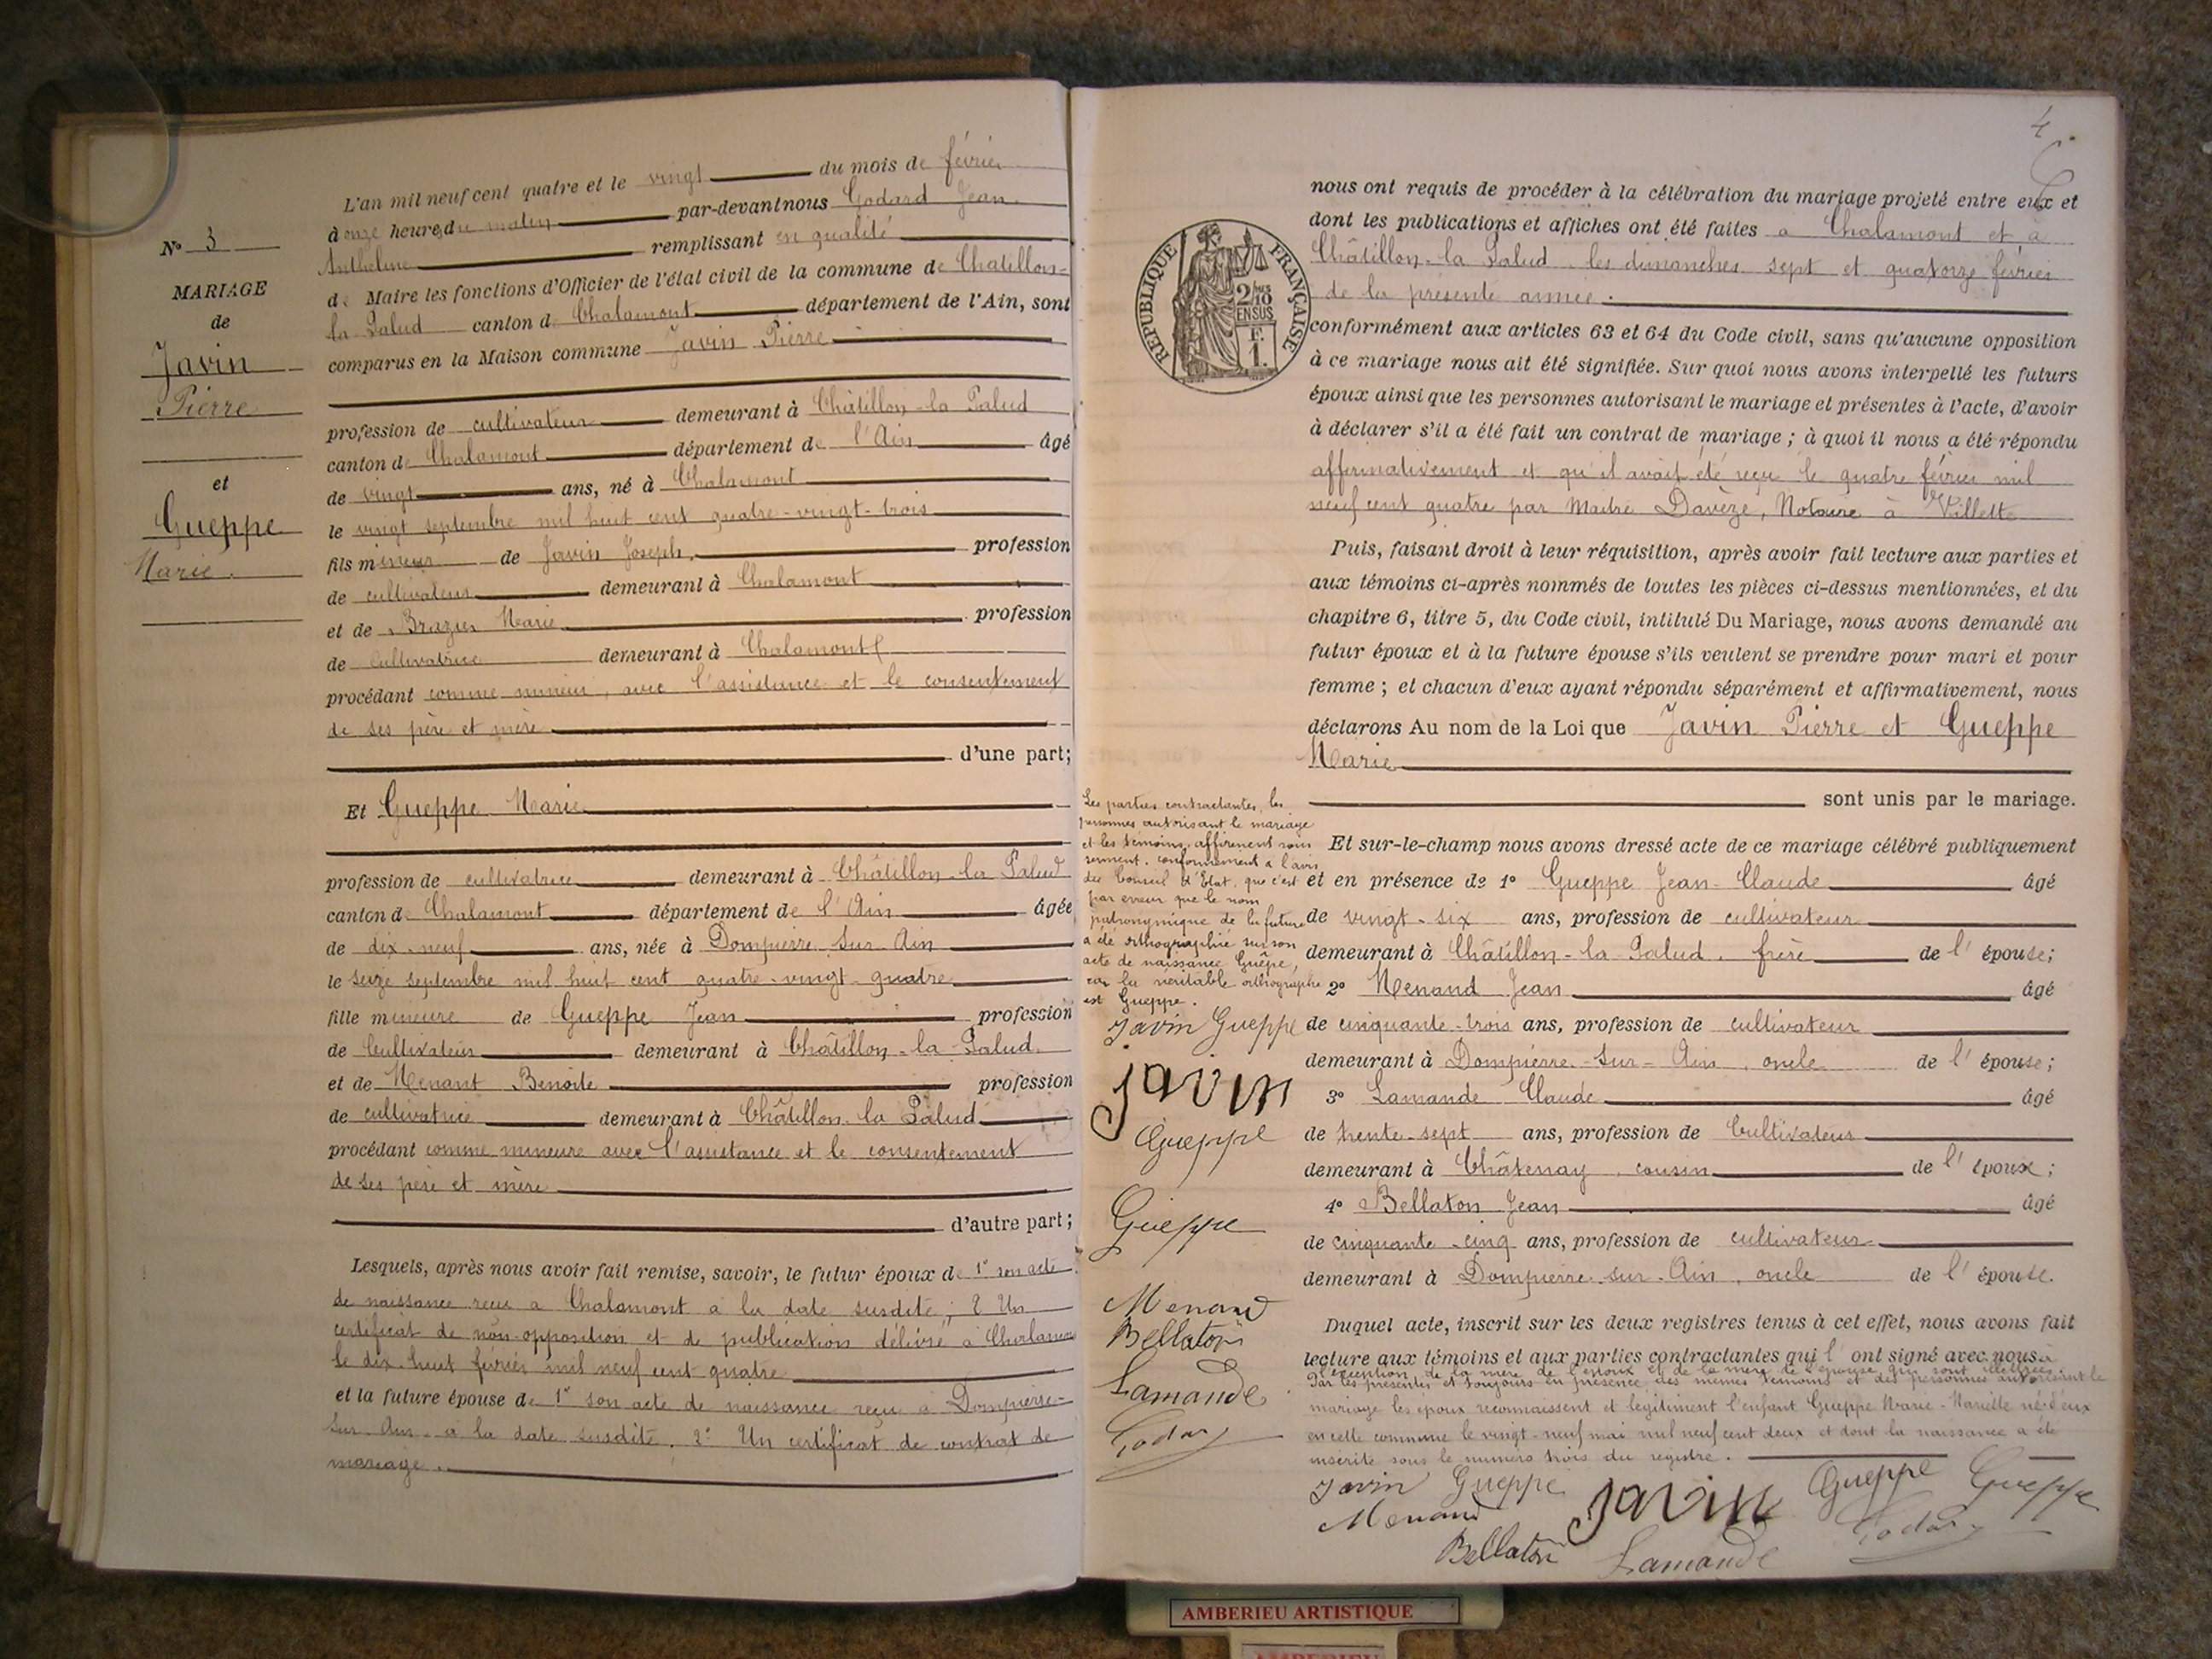 N° 3
MARIAGE
de
Javin
Pierre
et
Gueppe
Marie.
L'an mil neuf cent quatre et le vingt du mois de février
à onze heures du matin par-devant nous Godard Jean-
Anthelme remplissant en qualité
de Maire les fonctions d'Officier de l'état civil de la commune de Chatillon-
la Palud canton de Chalamont département de l'Ain, sont
comparus en la Maison commune Javin Pierre
profession de cultivateur demeurant à Châtillon-la Palud
canton de Chalamont département de l'Ain âgé
de vingt ans, né à Chalamont
le vingt septembre mil huit cent quatre-vingt-trois
fils mineur de Javin Joseph, profession
de cultivateur demeurant à Chalamont
et de Brazier Marie profession
de cultivatrice demeurant à Chalamont
procédant comme mineur, avec l'assistance et le consentement
de ses père et mère
d'une part;
Et Gueppe Marie
profession de cultivatrice demeurant à Châtillon-la Palud
canton de Chalamont département de l'Ain âgée
de dix-neuf ans, née à Dompierre sur Ain
le seize septembre mil huit cent quatre-vingt-quatre
fille mineure de Gueppe Jean profession
de Cultivateur demeurant à Châtillon-la-Palud
et de Menant Benoite profession
de cultivatrice demeurant à Châtillon-la Palud
procédant comme mineure avec l'assistance et le consentement
de ses père et mère
d'autre part;
Lesquels, après nous avoir fait remise, savoir, le futur époux de 1° son acte
de naissance reçu a Chalamont a la date susdite; 2 Un
certificat de non-opposition et de publication délivré a Chalamont
le dix-huit février mil neuf cent quatre
et la future épouse de 1° son acte de naissance reçu a Dompierre-
sur Ain a la date susdite. 2° Un certificat de contrat de
mariage.
4
RÉPUBLIQUE FRANÇAISE
2/10
EN SUS
F.
1.
nous ont requis de procéder à la célébration du mariage projeté entre eux et
dont les publications et affiches ont été faites a Chalamont et a
Châtillon-la Palud les dimanches sept et quatorze février
de la presente année.
conformément aux articles 63 et 64 du Code civil, sans qu'aucune opposition
à ce mariage nous ait été signifiée. Sur quoi nous avons interpellé les futurs
époux ainsi que les personnes autorisant le mariage et présentes à l'acte, d'avoir
à déclarer s'il a été fait un contrat de mariage; à quoi il nous a été répondu
affirmativement et qu'il avait été reçu le quatre février mil
neuf cent quatre par Maitre Davèze, Notaire à Villette
Puis, faisant droit à leur réquisition, après avoir fait lecture aux parties et
aux témoins ci-après nommés de toutes les pièces ci-dessus mentionnées, et du
chapitre 6, titre 5, du Code civil, intitulé Du Mariage, nous avons demandé au
futur époux et à la future épouse s'ils veulent se prendre pour mari et pour
femme; et chacun d'eux ayant répondu séparément et affirmativement, nous
déclarons Au nom de la Loi que Javin Pierre et Gueppe
Marie
sont unis par le mariage.
Et sur-le-champ nous avons dressé acte de ce mariage célébré publiquement
et en présence de 1° Gueppe Jean-Claude âgé
de vingt-six ans, profession de cultivateur
demeurant à Châtillon-la Palud, frère de l'épouse;
2° Menand Jean âgé
de cinquante-trois ans, profession de cultivateur
demeurant à Dompierre-sur-Ain, oncle de l'épouse;
3° Lamande Claude âgé
de trente-sept ans, profession de Cultivateur
demeurant à Châtenay, cousin de l'époux;
4° Bellaton Jean âgé
de cinquante-cinq ans, profession de cultivateur
demeurant à Dompierre-sur-Ain, oncle de l'épouse.
Duquel acte, inscrit sur les deux registres tenus à cet effet, nous avons fait
lecture aux témoins et aux parties contractantes qui l'ont signé avec nous à
l'exception de la mère de l'époux et de la mère de l'épouse qui sont illettrées.
Par les présentes et toujours en présence des mêmes témoins et des personnes autorisant le
mariage les époux reconnaissent et légitiment l'enfant Gueppe Marie-Mariette né d'eux
en cette commune le vingt-neuf mai mil neuf cent deux et dont la naissance a été
inscrite sous le numéro trois du registre.
Javin Gueppe Javin Gueppe Gueppe
Menand Godard
Bellaton Lamande
Les parties contractantes, les
personnes autorisant le mariage
et les témoins affirment sous
serment, conformement a l'avis
du Conseil d'Etat, que c'est
par erreur que le nom
patronymique de la future
a été orthographié sur son
acte de naissance Guêpe,
car la véritable orthographe
est Gueppe.
Javin Gueppe
Javin
Gueppe
Gueppe
Menand
Bellaton
Lamande
Godard
AMBERIEU ARTISTIQUE
AMBERIEU